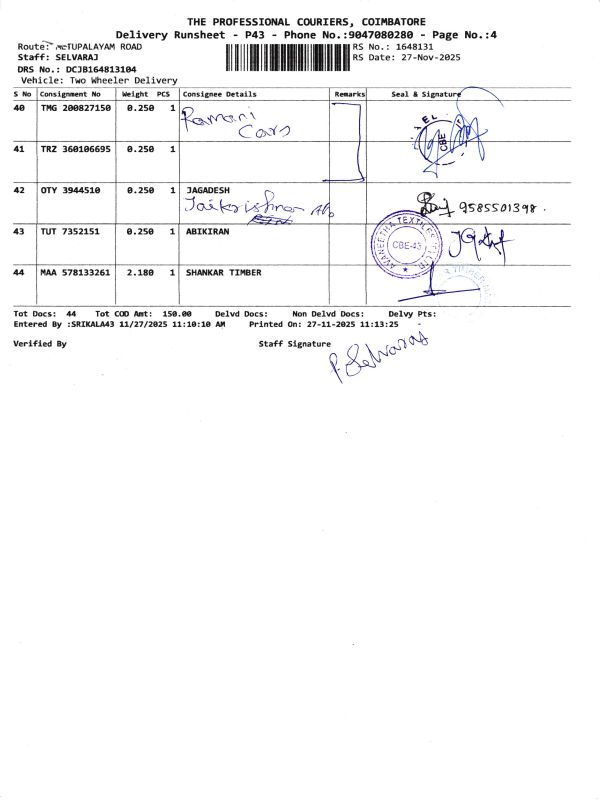 THE PROFESSIONAL COURIERS, COIMBATORE
Delivery Runsheet - P43 - Phone No.:9047080280 - Page No.:4
Route: METTUPALAYAM ROAD RS No.: 1648131
Staff: SELVARAJ RS Date: 27-Nov-2025
DRS No.: DCJB164813104
Vehicle: Two Wheeler Delivery
S No Consignment No Weight PCS Consignee Details Remarks Seal & Signature
40 TMG 200827150 0.250 1 Ramani
Cars
CBE
41 TRZ 360106695 0.250 1
42 OTY 3944510 0.250 1 JAGADESH
Jaikrishna 9585501398.
43 TUT 7352151 0.250 1 ABIKIRAN
AVANEETHA TEXTILES
CBE-43
44 MAA 578133261 2.180 1 SHANKAR TIMBER
Tot Docs: 44 Tot COD Amt: 150.00 Delvd Docs: Non Delvd Docs: Delvy Pts:
Entered By :SRIKALA43 11/27/2025 11:10:10 AM Printed On: 27-11-2025 11:13:25
Verified By Staff Signature
P. Selvaraj